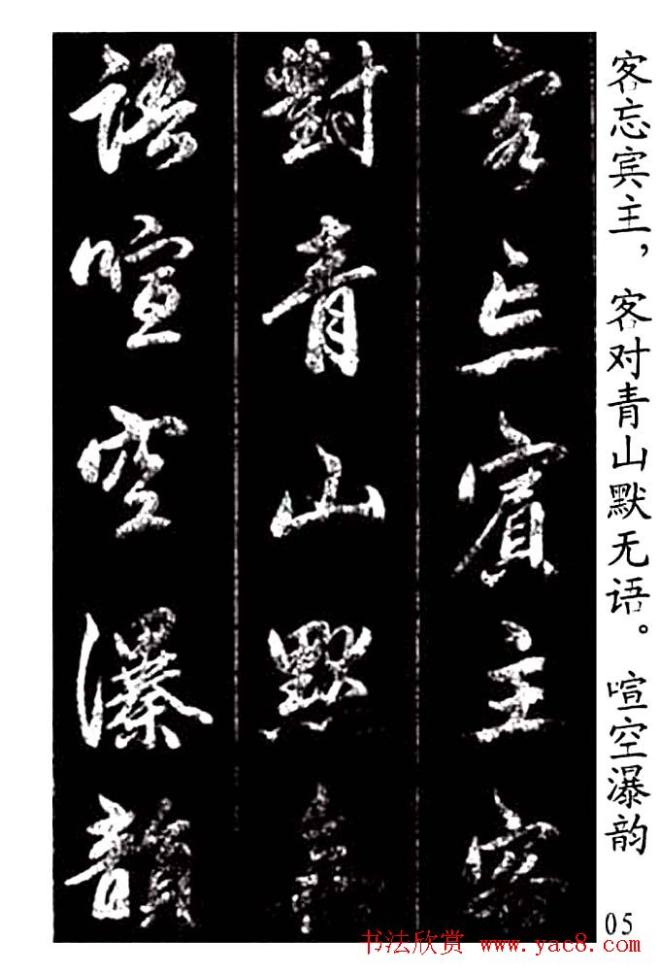 客忘賓主客
對青山默無
語喧空瀑韻
客忘宾主，客对青山默无语。喧空瀑韵
05
书法欣赏 www.yac8.com